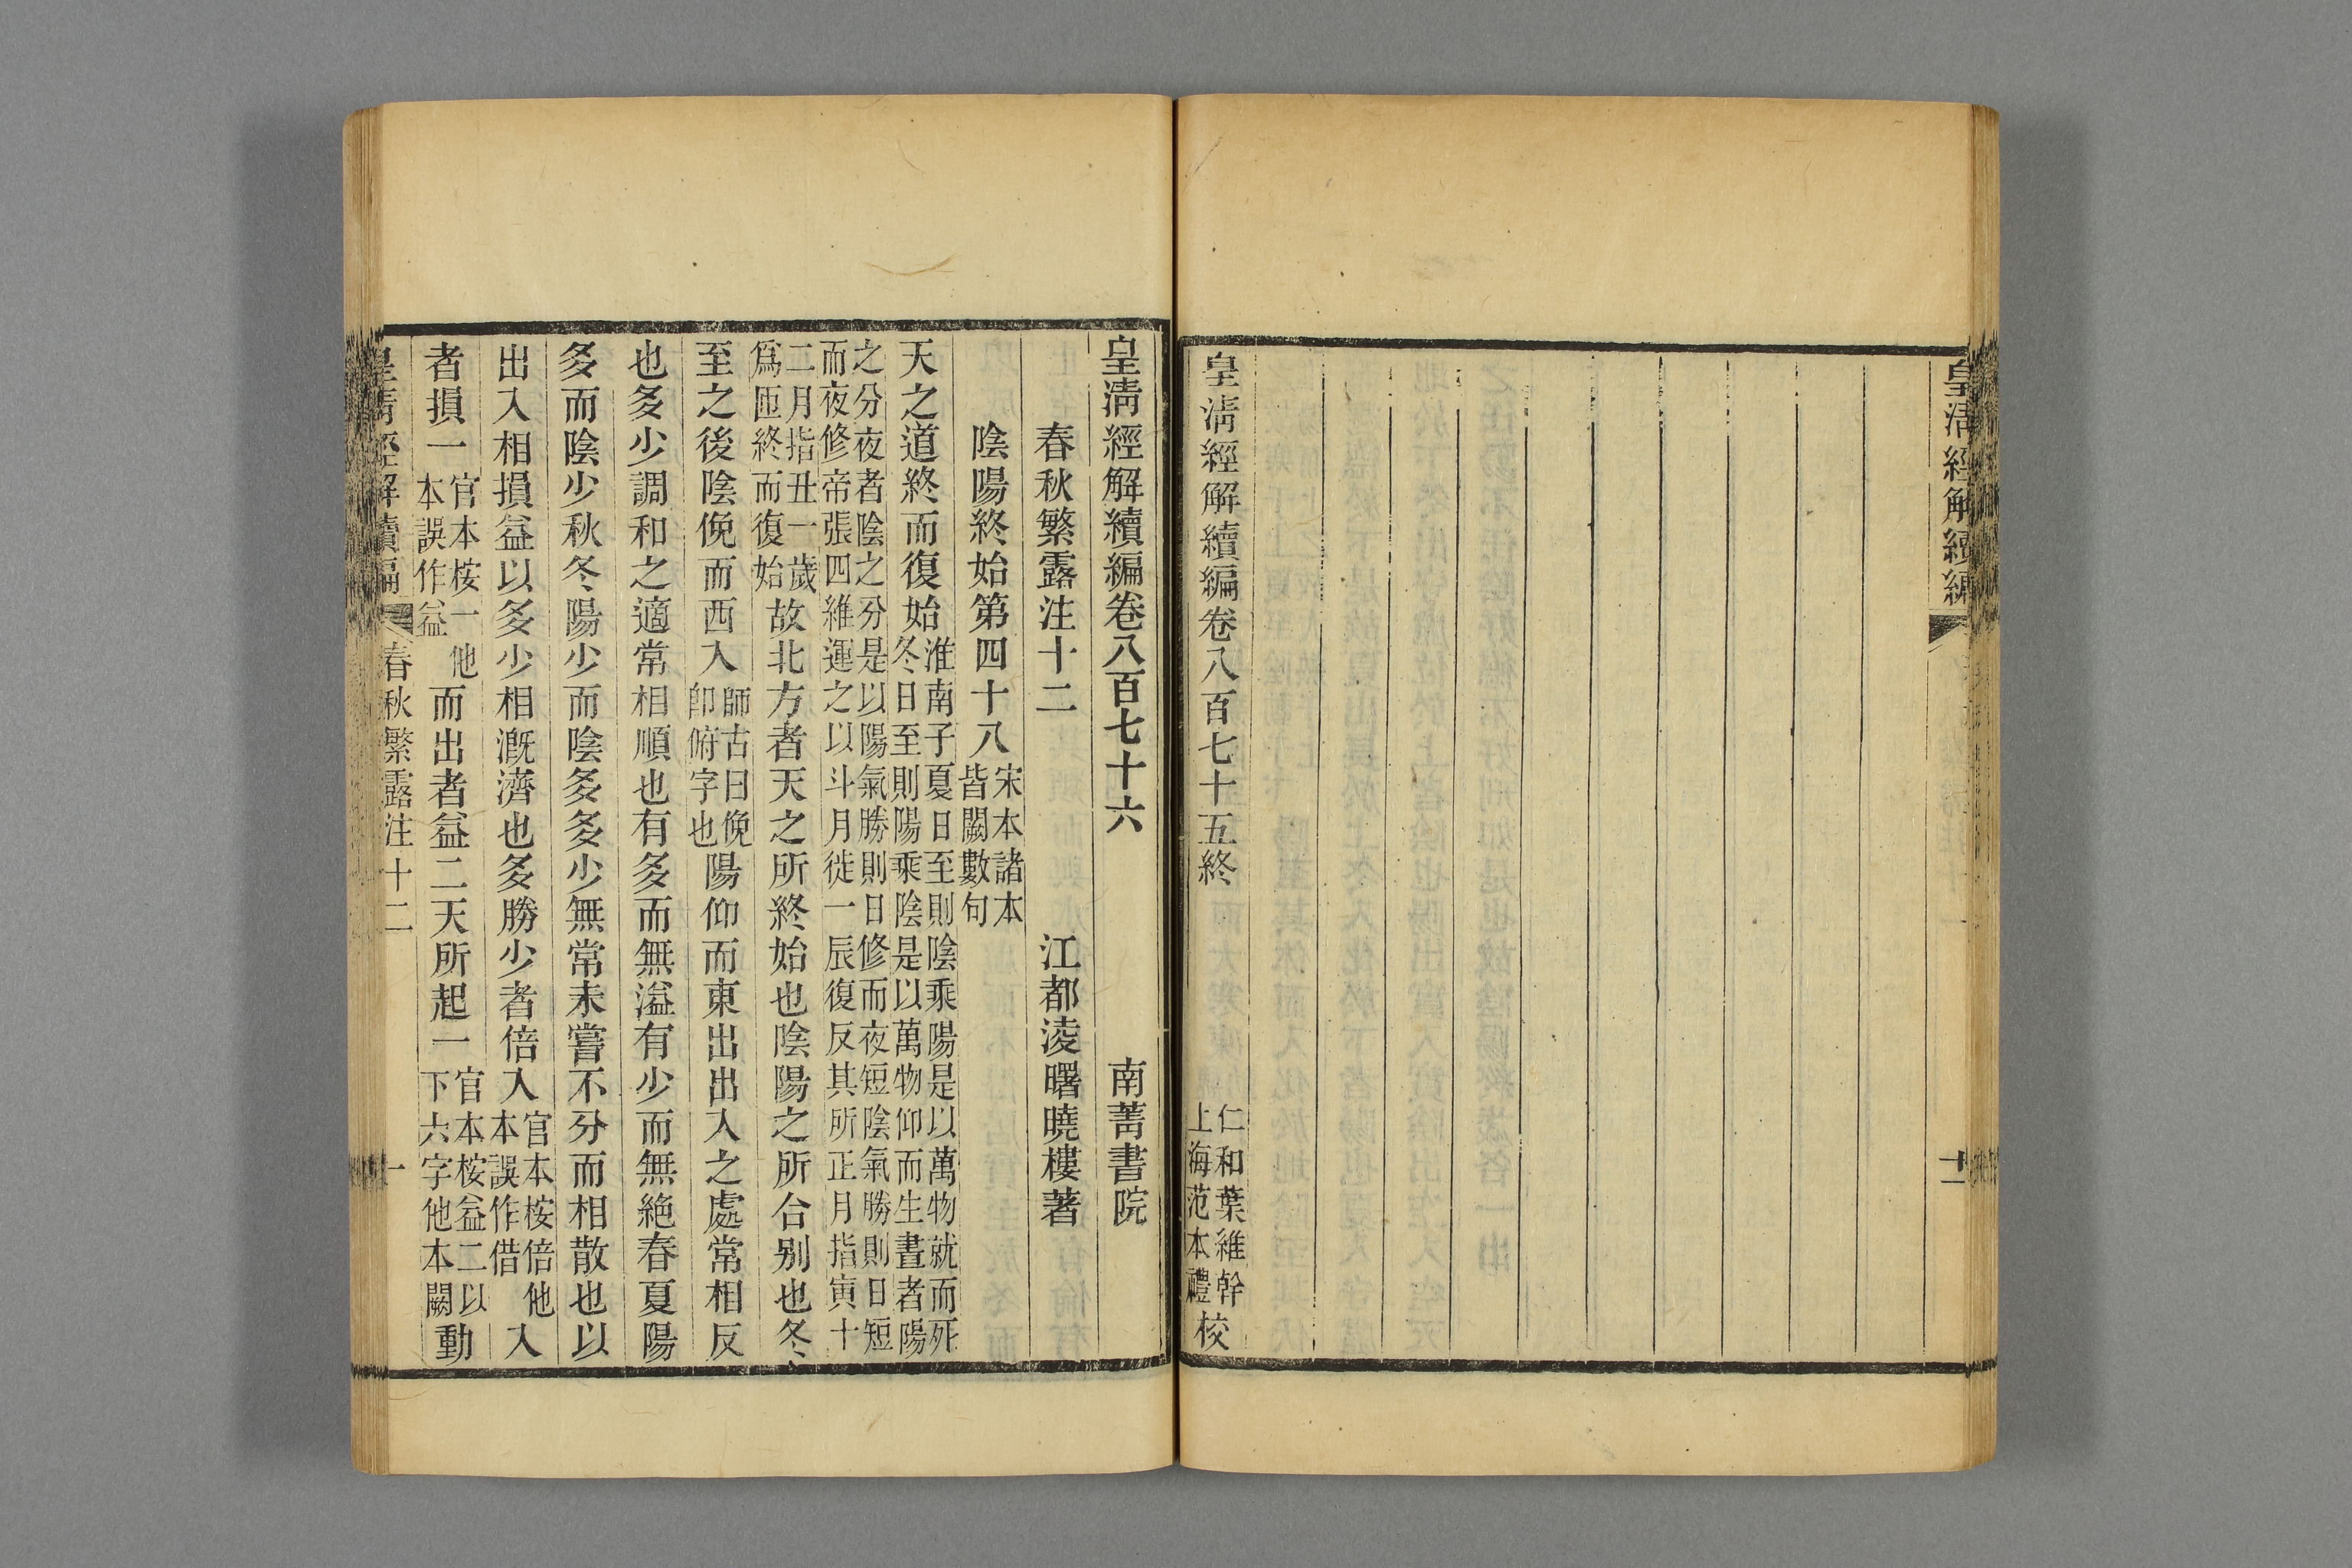 皇清經解續編
十一
皇清經解續編卷八百七十五終
仁和葉維幹
上海范本禮
校
皇清經解續編卷八百七十六
南菁書院
春秋繁露注十二
江都淩曙曉樓著
陰陽終始第四十八
宋本諸本
皆闕數句
天之道終而復始
淮南子夏日至則陰乘陽是以萬物就而死
冬日至則陽乘陰是以萬物仰而生晝者陽
之分夜者陰之分是以陽氣勝則日修而夜短陰氣勝則日短
而夜修帝張四維運之以斗月徙一辰復反其所正月指寅十
二月指丑一歲
爲匝終而復始
故北方者天之所終始也陰陽之所合別也冬
至之後陰俛而西入
師古曰俛
卽俯字也
陽仰而東出出入之處常相反
也多少調和之適常相順也有多而無溢有少而無絶春夏陽
多而陰少秋冬陽少而陰多多少無常未嘗不分而相散也以
出入相損益以多少相漑濟也多勝少者倍入
官本桉倍他
本誤作借
入
者損一
官本桉一他
本誤作益
而出者益二天所起一
官本桉益二以
下六字他本闕
動
皇清經解續編
春秋繁露注十二
一